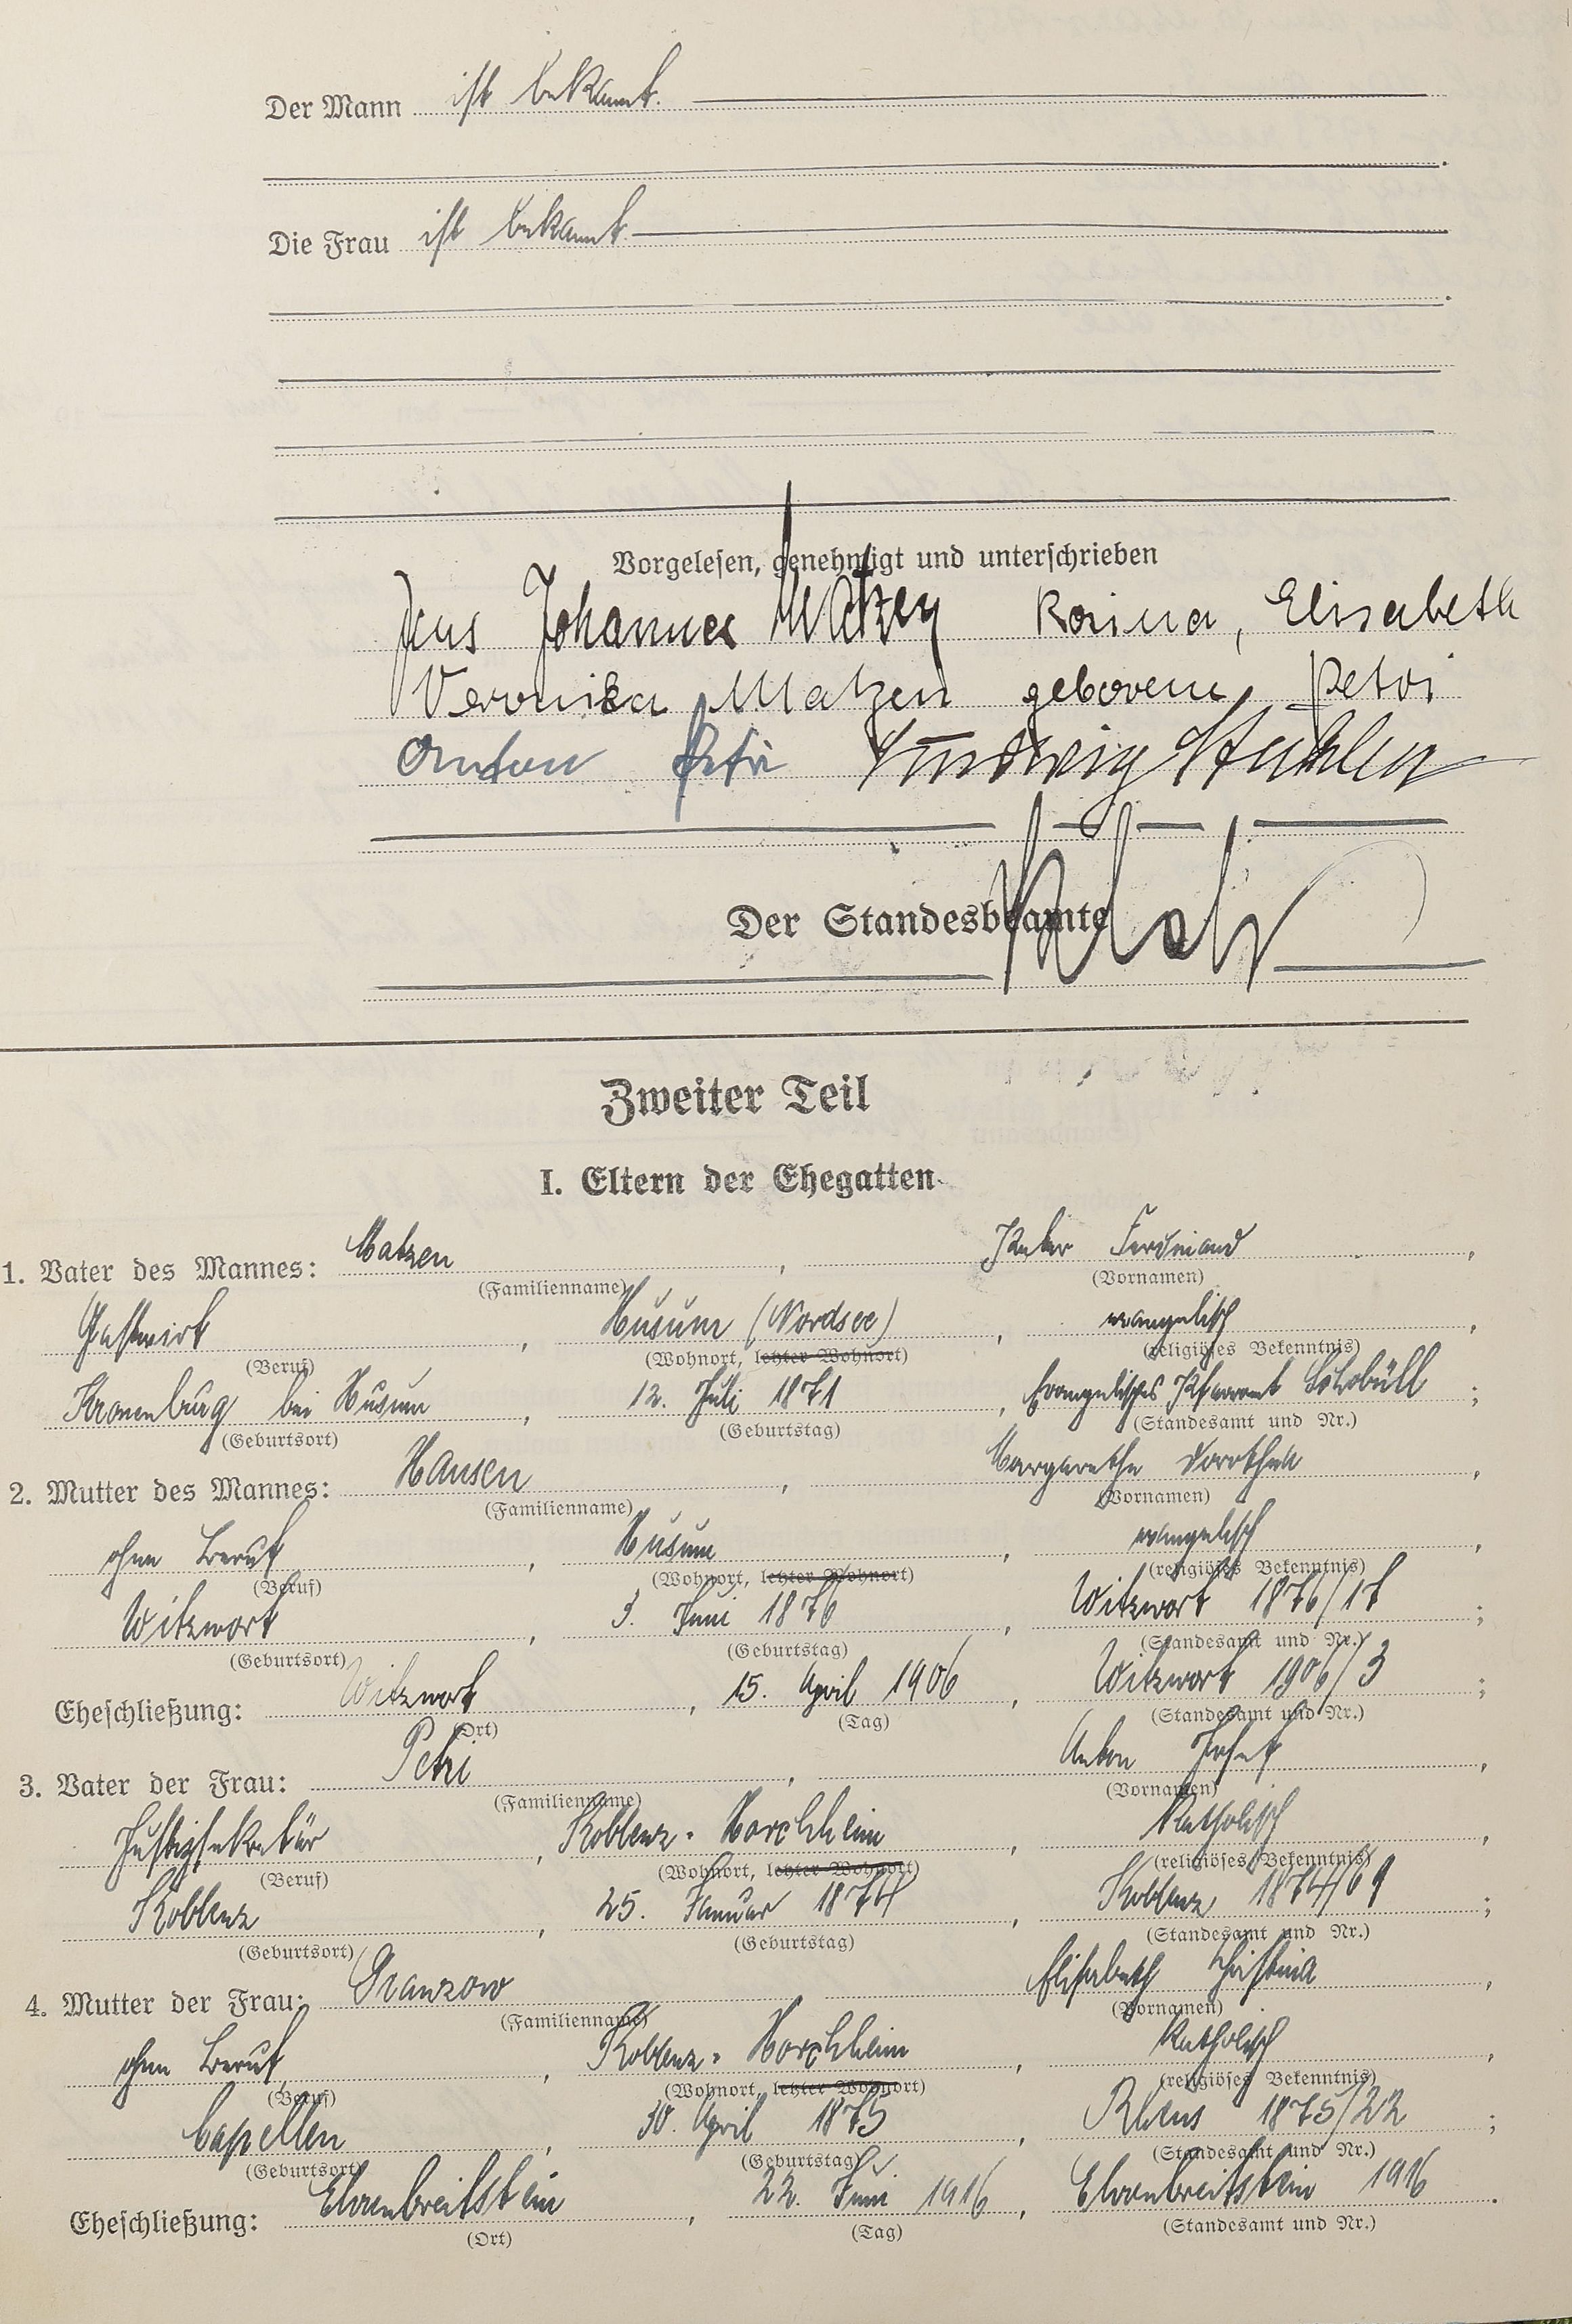 Der Mann ist bekannt.
Die Frau ist bekannt.
Vorgelesen, genehmigt und unterschrieben
Jens Johannes Matzen Rosina, Elisabeth
Veronika Matzen geborene, Petri
Anton Petri Ludwig Stuhlen
Der Standesbeamte
Zweiter Teil
I. Eltern der Ehegatten
1. Vater des Mannes: Matzen, Peter Ferdinand,
(Familienname) (Vornamen)
Gastwirt, Husum (Nordsee), evangelisch,
(Beruf) (Wohnort, letzter Wohnort) (religiöses Bekenntnis)
Kronenburg bei Husum, 12. Juli 1871, Evangelisches Pfarramt Schobüll;
(Geburtsort) (Geburtstag) (Standesamt und Nr.)
2. Mutter des Mannes: Hansen, Margarethe Dorothea,
(Familienname) (Vornamen)
ohne Beruf, Husum, evangelisch,
(Beruf) (Wohnort, letzter Wohnort) (religiöses Bekenntnis)
Witzwort, 3. Juni 1876, Witzwort 1876/17;
(Geburtsort) (Geburtstag) (Standesamt und Nr.)
Eheschließung: Witzwort, 15. April 1906, Witzwort 1906/3;
(Ort) (Tag) (Standesamt und Nr.)
3. Vater der Frau: Petri, Anton Josef,
(Familienname) (Vornamen)
Justizsekretär, Koblenz-Horchheim, katholisch,
(Beruf) (Wohnort, letzter Wohnort) (religiöses Bekenntnis)
Koblenz, 25. Januar 1874, Koblenz 1874/69;
(Geburtsort) (Geburtstag) (Standesamt und Nr.)
4. Mutter der Frau: Granzow, Elisabeth Christina,
(Familienname) (Vornamen)
ohne Beruf, Koblenz-Horchheim, katholisch,
(Beruf) (Wohnort, letzter Wohnort) (religiöses Bekenntnis)
Capellen, 30. April 1875, Rhens 1875/22;
(Geburtsort) (Geburtstag) (Standesamt und Nr.)
Eheschließung: Ehrenbreitstein, 22. Juni 1916, Ehrenbreitstein 1916.
(Ort) (Tag) (Standesamt und Nr.)